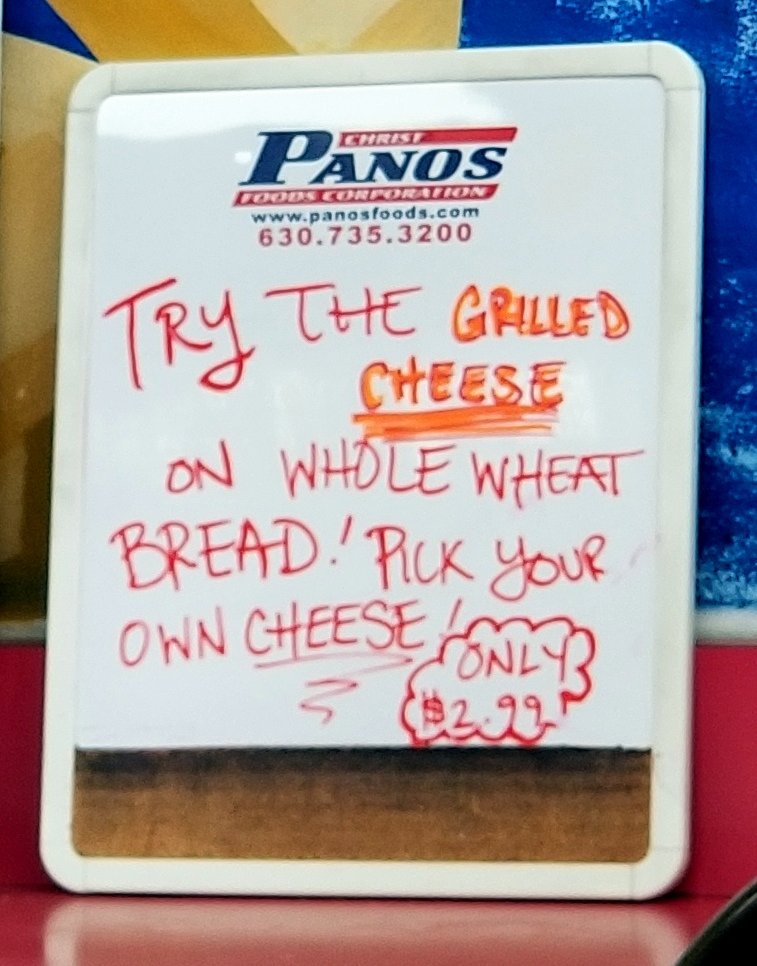 CHRIST
PANOS
FOODS CORPORATION
www.panosfoods.com
630.735.3200
TRY THE GRILLED
CHEESE
ON WHOLE WHEAT
BREAD! PICK YOUR
OWN CHEESE!
ONLY
$2.99